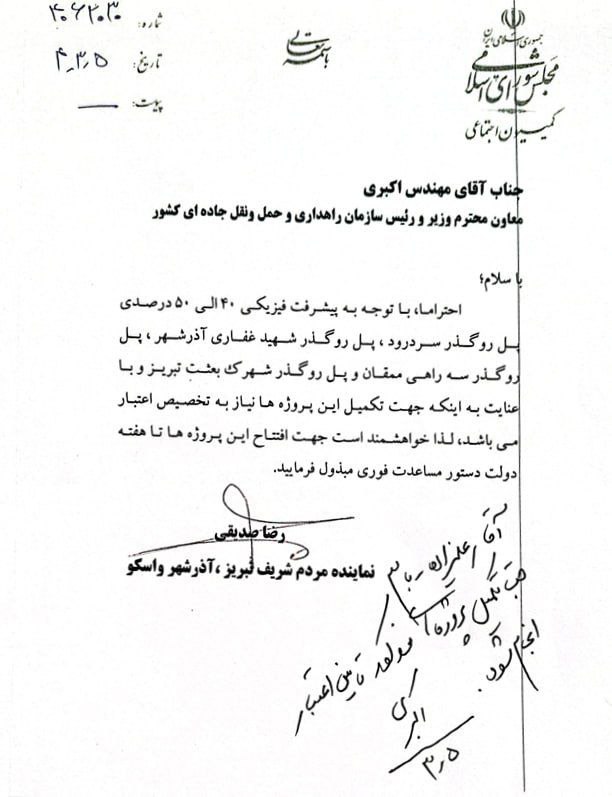 جمهوری اسلامی ایران
مجلس شورای اسلامی
کمیسیون اجتماعی
باسمه تعالی
شماره:
تاریخ:
پیوست:
جناب آقای مهندس اکبری
معاون محترم وزیر و رئیس سازمان راهداری و حمل ونقل جاده ای کشور
با سلام؛
احتراما، با توجه به پیشرفت فیزیکی ۴۰ الی ۵۰ درصدی
پل روگذر سردرود ، پل روگذر شهید غفاری آذرشهر ، پل
روگذر سه راهی ممقان و پل روگذر شهرک بعثت تبریز و با
عنایت به اینکه جهت تکمیل این پروژه ها نیاز به تخصیص اعتبار
می باشد، لذا خواهشمند است جهت افتتاح این پروژه ها تا هفته
دولت دستور مساعدت فوری مبذول فرمایید.
رضا صدیقی
نماینده مردم شریف تبریز ،آذرشهر واسکو
آقای علیزاده
جهت تکمیل پروژه
تامین اعتبار
انجام شود.
اکبری
۳٫۵